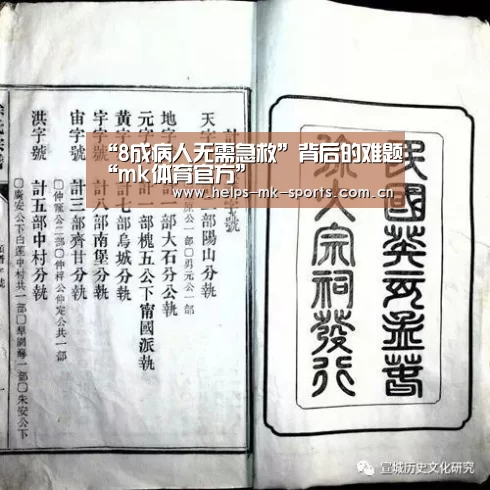 “8成病人无需急救”背后的难题
“mk体育官方”
www.helps-mk-sports.com.cn
民國癸亥孟春
徐氏宗祠發行
天字
部陽山分執
勇元公一部
地字
一部大石分公執
元字
計一部槐五公下甯國派執
黃字
計七部烏城分執
計八部南堡分執
宙字號
計三部齊廿分執
〇仲寵公二部〇仲祥公仲定公共一部
洪字號
計五部中村分執
〇廣安公下白蓮中村共一部〇
一部〇朱安公下
宣城历史文化研究